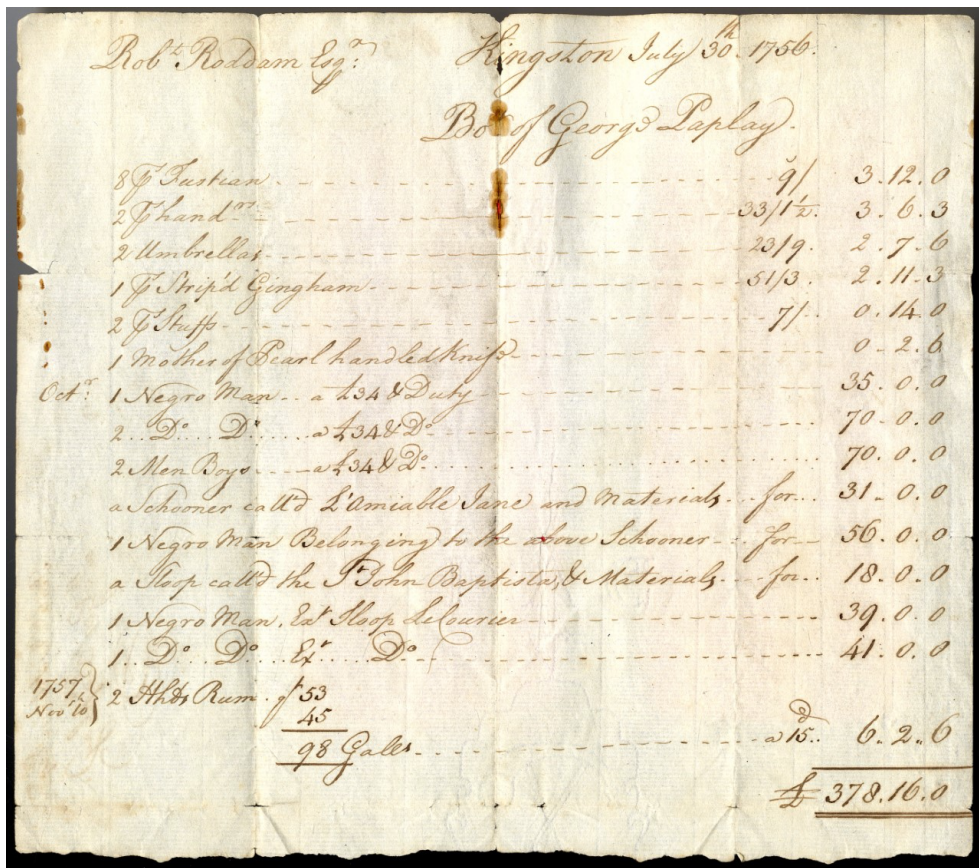 Robt. Roddam Esqr. Kingston July 30th. 1756.
Bot of George Paplay.
8 ps Fustian 9/ 3.12.0
2 ps handrs 33/1½. 3.6.3
2 Umbrellas 23/9. 2.7.6
1 ps Strip'd Gingham 51/3. 2.11.3
2 ps Stuffs 7/ 0.14.0
1 Mother of Pearl handled Knife 0.2.6
Octr. 1 Negro Man.. a £34 & Duty 35.0.0
2.. Do.... Do..... a £34 & Do. 70.0.0
2 Men Boys a £34 & Do. 70.0.0
a Schooner call'd L'Amiable Jane and Materials.. for... 31.0.0
1 Negro Man Belonging to the above Schooner for 56.0.0
a Sloop call'd the St. John Baptista, & Materials for.. 18.0.0
1 Negro Man. Exr Sloop LeCourier 39.0.0
1.. Do... Do.... Exr..... Do. 41.0.0
1757 Novr. 10th } 2 Hhds Rum. qt 53
45
98 Galls a 15d.. 6.2.6
£ 378.16.0